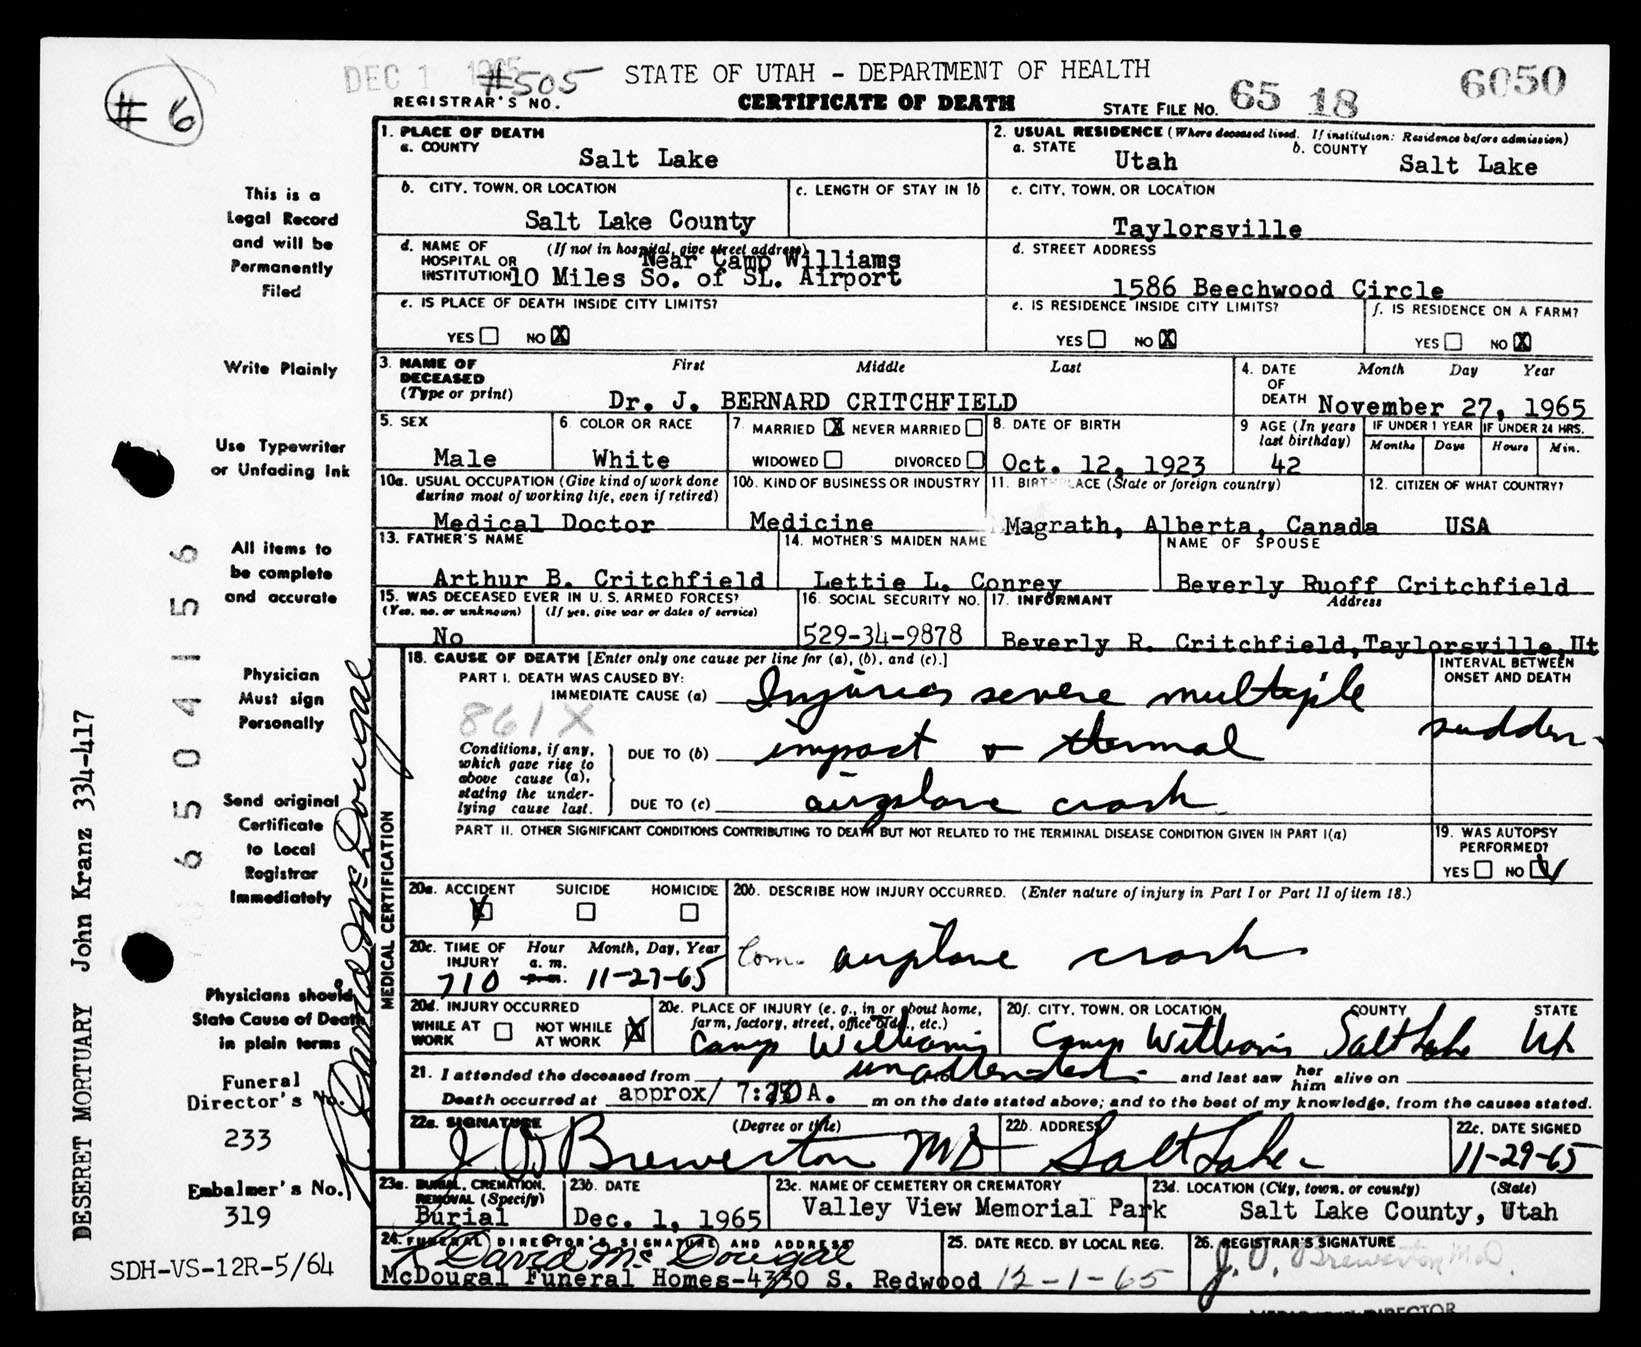 DEC 1 1965
#505
STATE OF UTAH - DEPARTMENT OF HEALTH
6050
# 6
REGISTRAR'S NO.
CERTIFICATE OF DEATH
STATE FILE NO. 65 18
1. PLACE OF DEATH
a. COUNTY
Salt Lake
2. USUAL RESIDENCE (Where deceased lived. If institution: Residence before admission)
a. STATE
Utah
b. COUNTY
Salt Lake
b. CITY, TOWN, OR LOCATION
Salt Lake County
c. LENGTH OF STAY IN 1b
c. CITY, TOWN, OR LOCATION
Taylorsville
d. NAME OF HOSPITAL OR INSTITUTION
(If not in hospital, give street address)
Near Camp Williams
10 Miles So. of SL. Airport
d. STREET ADDRESS
1586 Beechwood Circle
e. IS PLACE OF DEATH INSIDE CITY LIMITS?
YES NO X
e. IS RESIDENCE INSIDE CITY LIMITS?
YES NO X
f. IS RESIDENCE ON A FARM?
YES NO X
3. NAME OF DECEASED
(Type or print)
First Middle Last
Dr. J. BERNARD CRITCHFIELD
4. DATE OF DEATH
Month Day Year
November 27, 1965
5. SEX
Male
6. COLOR OR RACE
White
7. MARRIED X NEVER MARRIED
WIDOWED DIVORCED
8. DATE OF BIRTH
Oct. 12, 1923
9 AGE (In years last birthday)
42
IF UNDER 1 YEAR
Months Days
IF UNDER 24 HRS.
Hours Min.
10a. USUAL OCCUPATION (Give kind of work done during most of working life, even if retired)
Medical Doctor
10b. KIND OF BUSINESS OR INDUSTRY
Medicine
11. BIRTHPLACE (State or foreign country)
Magrath, Alberta, Canada
12. CITIZEN OF WHAT COUNTRY?
USA
13. FATHER'S NAME
Arthur B. Critchfield
14. MOTHER'S MAIDEN NAME
Lettie L. Conrey
NAME OF SPOUSE
Beverly Ruoff Critchfield
15. WAS DECEASED EVER IN U. S. ARMED FORCES?
(Yes, no, or unknown) (If yes, give war or dates of service)
No
16. SOCIAL SECURITY NO.
529-34-9878
17. INFORMANT Address
Beverly R. Critchfield, Taylorsville, Ut
MEDICAL CERTIFICATION
18. CAUSE OF DEATH [Enter only one cause per line for (a), (b), and (c).]
PART I. DEATH WAS CAUSED BY:
IMMEDIATE CAUSE (a) Injuries severe multiple
861X
Conditions, if any, which gave rise to above cause (a), stating the underlying cause last.
DUE TO (b) impact & thermal
DUE TO (c) airplane crash
INTERVAL BETWEEN ONSET AND DEATH
sudden
PART II. OTHER SIGNIFICANT CONDITIONS CONTRIBUTING TO DEATH BUT NOT RELATED TO THE TERMINAL DISEASE CONDITION GIVEN IN PART I(a)
19. WAS AUTOPSY PERFORMED?
YES NO ✓
20a. ACCIDENT SUICIDE HOMICIDE
X
20b. DESCRIBE HOW INJURY OCCURRED. (Enter nature of injury in Part I or Part II of item 18.)
Com. airplane crash
20c. TIME OF INJURY
Hour Month, Day, Year
a. m.
p. m.
710 11-27-65
20d. INJURY OCCURRED
WHILE AT WORK NOT WHILE AT WORK X
20e. PLACE OF INJURY (e. g., in or about home, farm, factory, street, office bldg., etc.)
Camp Williams
20f. CITY, TOWN, OR LOCATION COUNTY STATE
Camp Williams Salt Lake Ut
21. I attended the deceased from unattended and last saw her him alive on
Death occurred at approx/ 7:20 A. m on the date stated above; and to the best of my knowledge, from the causes stated.
22a. SIGNATURE (Degree or title)
J O Brewerton MD
22b. ADDRESS
Salt Lake
22c. DATE SIGNED
11-29-65
23a. BURIAL, CREMATION, REMOVAL (Specify)
Burial
23b. DATE
Dec. 1, 1965
23c. NAME OF CEMETERY OR CREMATORY
Valley View Memorial Park
23d. LOCATION (City, town, or county) (State)
Salt Lake County, Utah
24. FUNERAL DIRECTOR'S SIGNATURE AND ADDRESS
R David McDougal
McDougal Funeral Homes-4330 S. Redwood
25. DATE RECD. BY LOCAL REG.
12-1-65
26. REGISTRAR'S SIGNATURE
J. O. Brewerton M.D.
MEDICAL DIRECTOR
This is a
Legal Record
and will be
Permanently
Filed
Write Plainly
Use Typewriter
or Unfading Ink
All items to
be complete
and accurate
Physician
Must sign
Personally
Send original
Certificate
to Local
Registrar
Immediately
Physicians should
State Cause of Death
in plain terms
Funeral
Director's No.
233
Embalmer's No.
319
SDH-VS-12R-5/64
DESERET MORTUARY John Kranz 334-417
65041556
R David McDougal